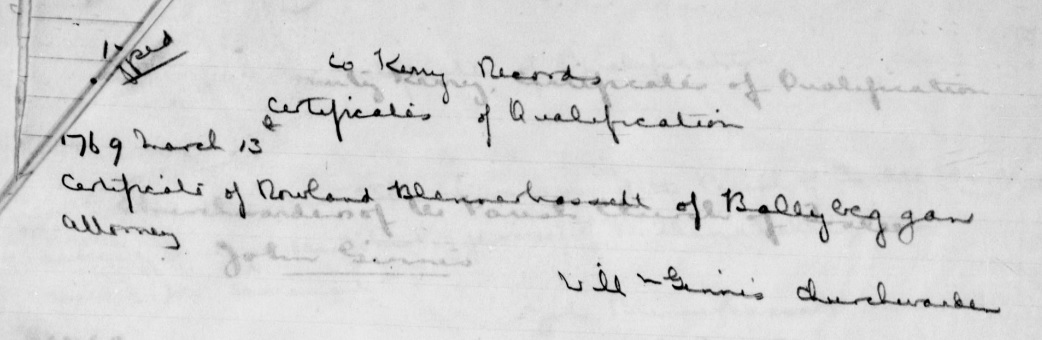 Typed
Co Kerry Records
Certificates of Qualification
1769 March 13
Certificate of Rowland Blennerhassett of Ballybeggan
Attorney
Will McGinnis Churchwarden